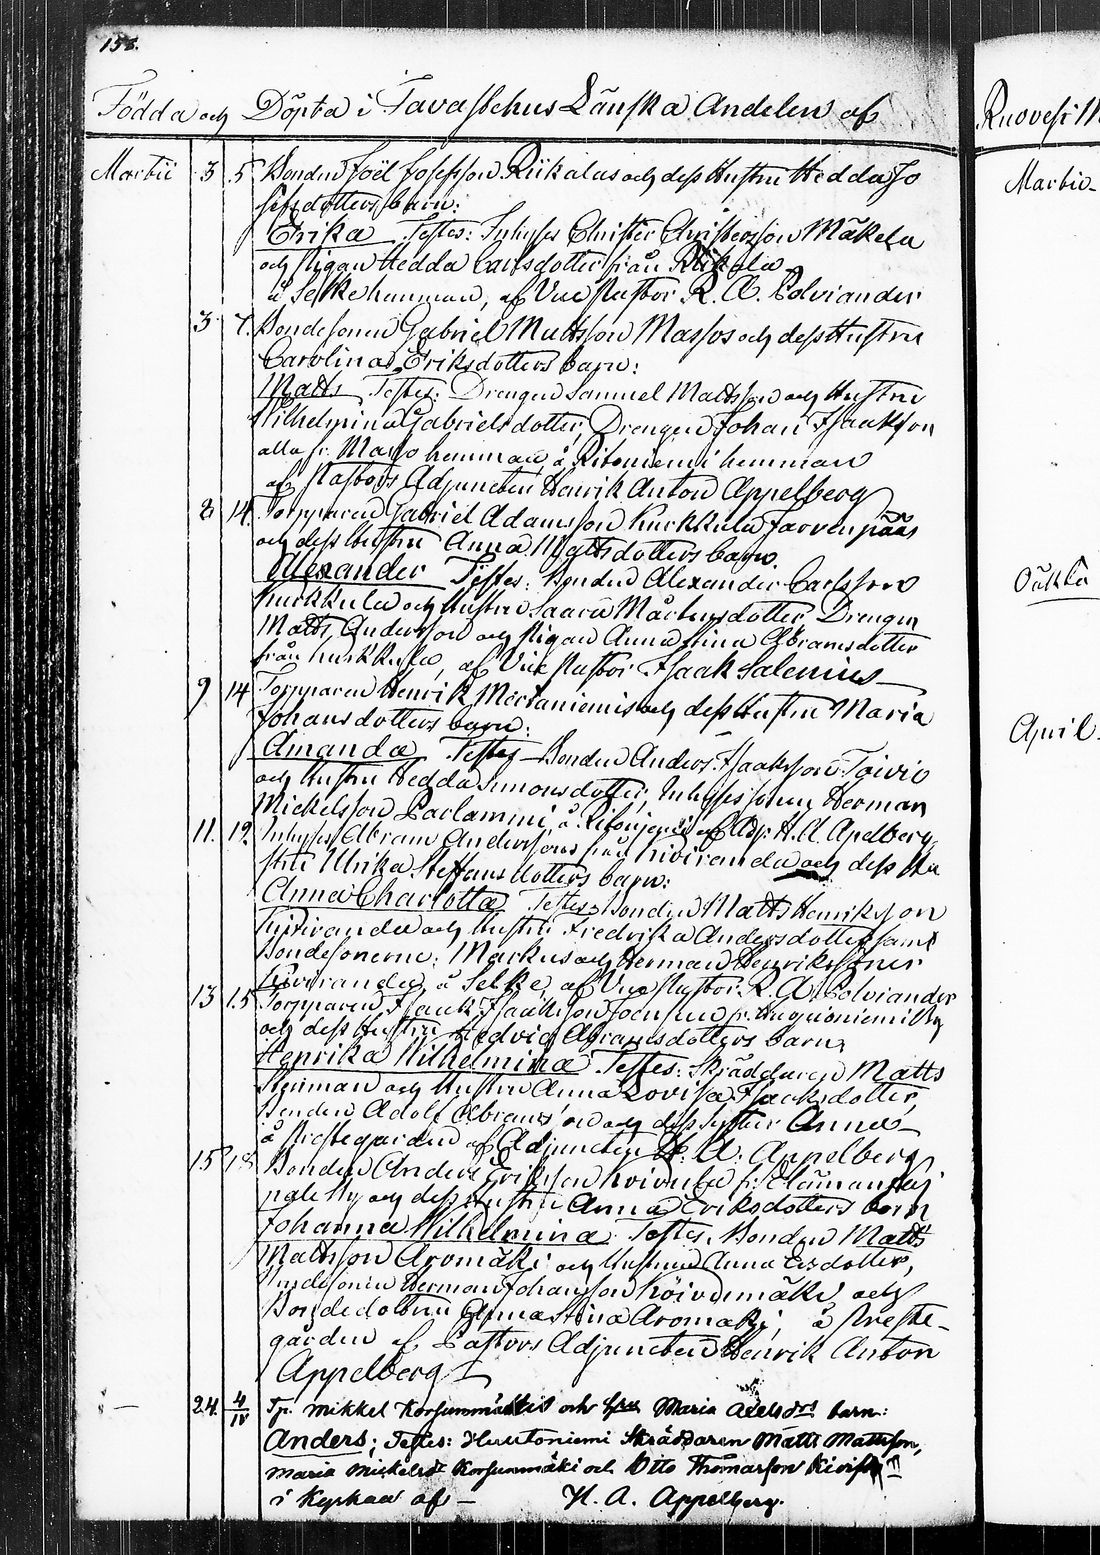 158.
Födda och Döpta i Tavastehus Länska Andelen af
Ruovesi
Martii 3 5 Bonden Joël Josefsson Riikalas och dess Hustru Hedda Jo
sefsdotters barn:
Erika Testes: Inhyses Christer Christersson Mäkelä
och Pigan Hedda Carlsdotter från
å Selke hemman, af Vice Pastor R. A. Polviander
3 7. Bondesonen Gabriel Mattsson Massos och dess Hustru
Carolina Eriksdotters barn:
Matts Testes: Drengen Samuel Mattsson och Hustru
Wilhelmina Gabrielsdotter, Drengen Johan Isaaksson
alla fr. Masso hemman, å Ritoniemi hemman
af Pastors Adjuncten Henrik Anton Appelberg
8 14. Torpparen Gabriel Adamsson Kurkkula Jarvenpääs
och dess Hustru Anna Mattsdotters barn.
Alexander Testes: Bonden Alexander Carlsson
Kurkkula och Hustru Saara Mårtensdotter, Drengen
Matts Andersson och Pigan Anna Stina Abramsdotter
från Kurkkula, af Vice Pastor Isaak Salenius
9 14 Torpparen Henrik Metäniemis och dess Hustru Maria
Johansdotters barn:
Amanda Testes Bonden Anders Isaaksson Toivio
och Hustru Hedda Simonsdotter, Inhyses sonen Herman
Mickelsson Parlammi å af Adj. H. A. Apelberg
11. 19. Inhyses Abram Anderssons från Kiviranda och dess Hu
stru Ulrika Steffansdotters barn:
Anna Charlotta Testes: Bonden Matts Henriksson
Kiviranda och Hustru Fredrika Andersdotter samt
Bondesönerne: Markus och Herman Henrikssöner
Kiviranda, å Selke, af Vice Pastor R. A. Polviander
13 15 Torpparen Isaak Isaaksson fr.
och dess Hustru Hedvig Abramsdotters barn:
Henrika Wilhelmina Testes: Skräddaren Matts
och Hustru Anna Lovisa Isaaksdotter,
Bonden Adolf Abramsson och dess syster Anna
å Prestegården af Adjuncten H. A. Appelberg
15 18 Bonden Anders Eriksson
och dess Hustru Anna Eriksdotters barn
Johanna Wilhelmina Testes, Bonden Matts
Mattsson Aromäki och Hustrun Anna
Bondesonen Herman Johansson Koivumäki och
Bondedottren Anna Stina Aromäki, å Preste-
gården af Pastors Adjuncten Henrik Anton
Appelberg
24. 4/IV Tp. Mikkel Korsunmäkis och hru Maria Axelsdrs barn:
Anders; Testes: Huutoniemi Skräddaren Matts Mattsson,
Maria Mickelsdr Korsunmäki och Otto Thomasson
i Kyrkan af – H. A. Appelberg.
Martio
April.